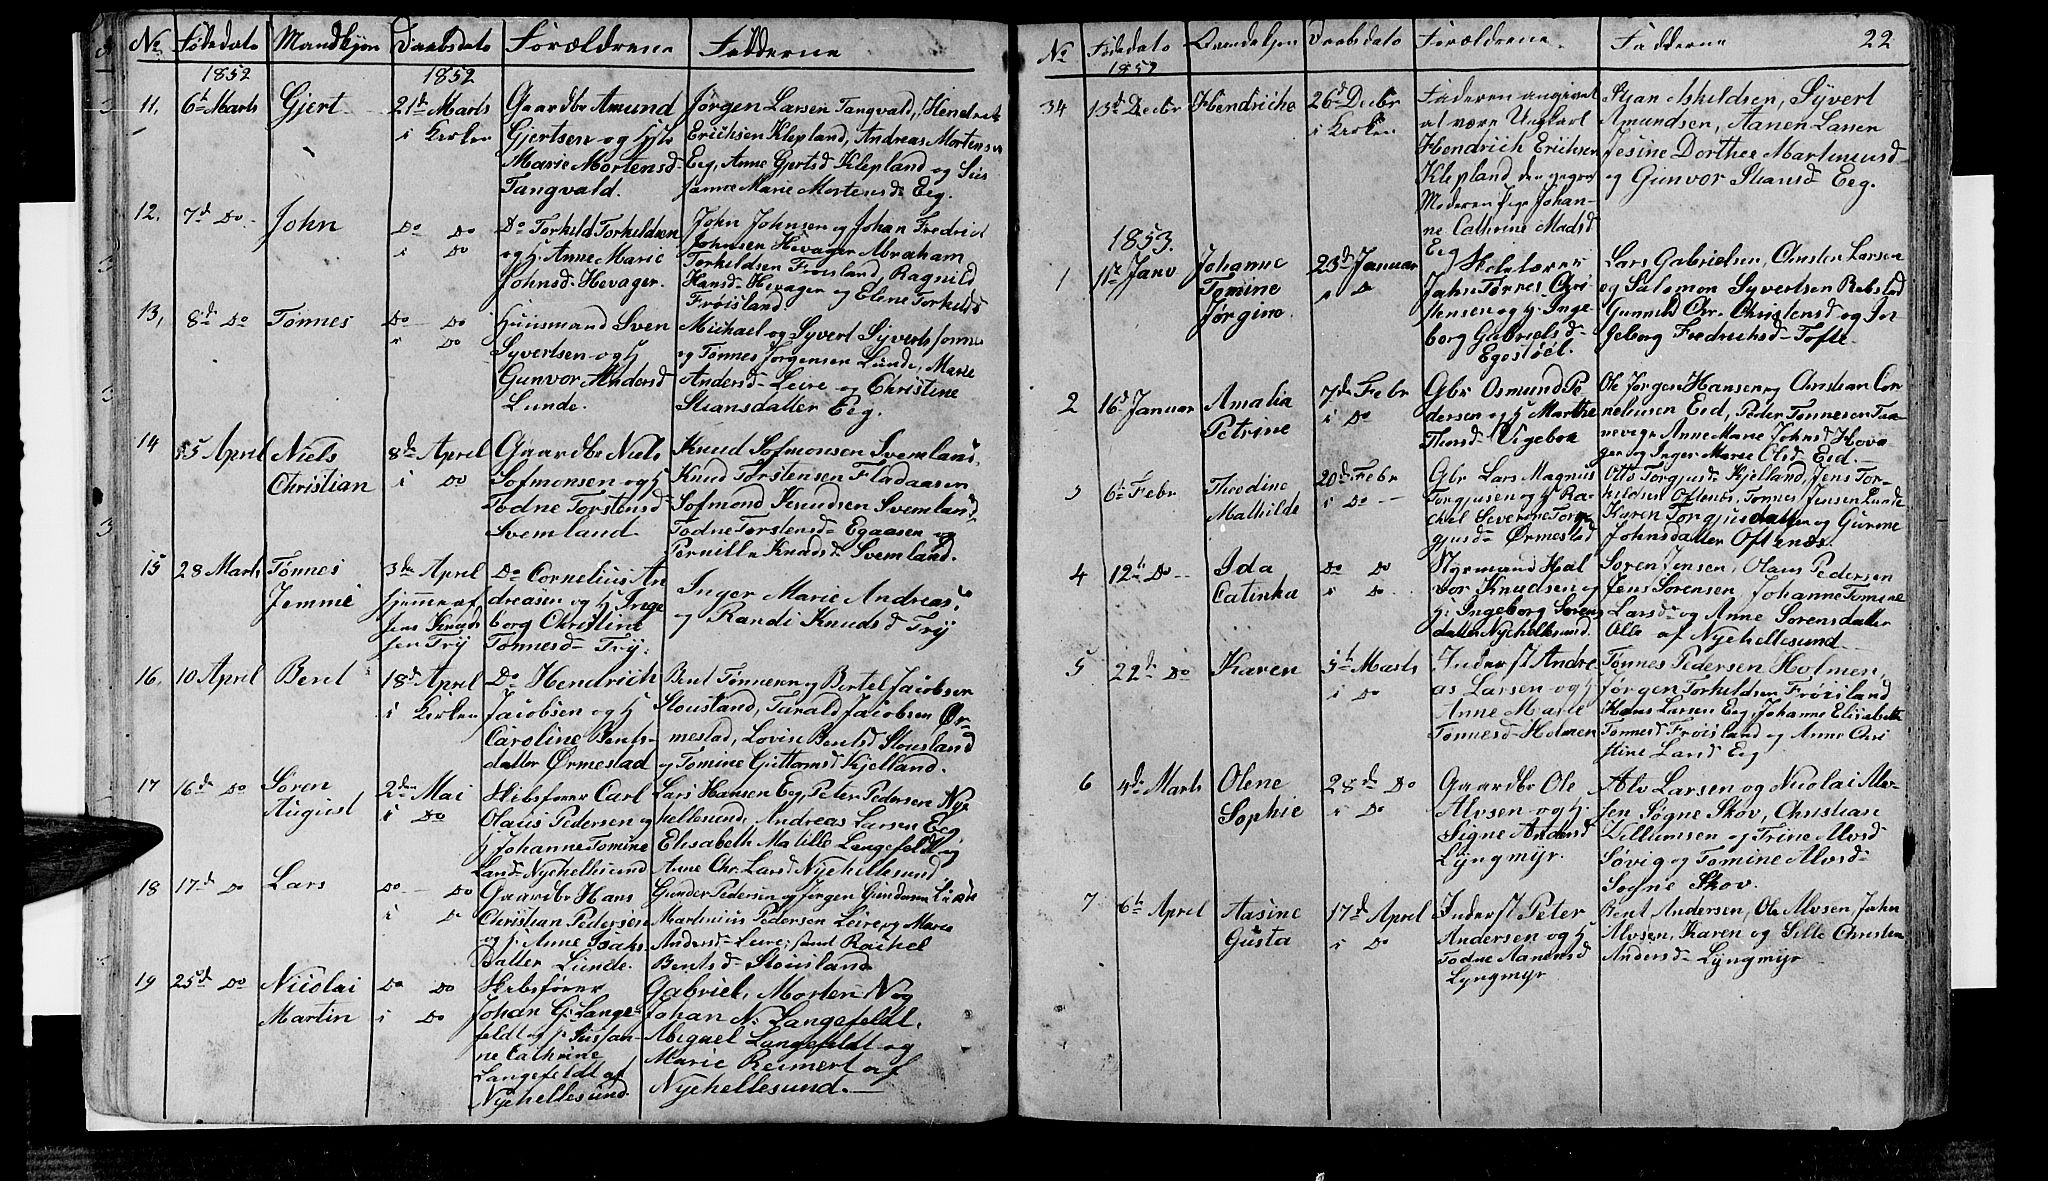 No Fødedato Mandkjøn Daabsdato Forældrene Fadderne
1852 1852
11. 6te Marts Gjert 21de Marts i Kirken
Gaardbr Amund
Gjertsen og
Marie Mortensd
Tangvald.
Jørgen Larsen Tangvald, Hendrik
Erichsen Klepland, Andreas Mortensen
Eeg, Anne Gjertsd Klepland og Sus
sanne Marie Mortensd Eeg.
12. 7de Do John Do Do i Do
Do Torkild Torkildsen
og H. Anne Marie
Johnsd Hevager.
John Johnsen og Johan Fredrick
Johnsen Hevager Abraham
Torkildsen Frøisland, Ragnild
Hansd Hevager og Elene Torkilds
Frøisland.
13, 8de Do Tønnes Do Do i Do
Huusmand Sven
Syvertsen og H
Gunvor Andersd
Lunde.
Michael og Syvert Syvertssønner
og Tønnes Jørgensen Lunde, Marie
Andersd Leire og Christine
Stiansdatter Eeg.
14 5 April Niels Christian 8de April i Do
Gaardbr Niels
Sofmonsen og H
Todne Torstensd
Svemland
Knud Sofmonsen Svemland,
Knud Torstensen Fladaasen
Sofmond Knudsen Svemland
Todne Torstensd Egaasen og
Pernille Knudsd Svemland.
15 28 Marts Tønnes Jemmie 3de April
hjemme af
Jens Knud
sen Try
Do Cornelius An
dreasen og H Inge
borg Christine
Tønnesd Try.
Inger Marie Andreasd
og Randi Knudsd Try
16. 10 April Bent 18de April i Kirken
Do Hendrich
Jacobsen og H
Caroline Bents-
datter Ørmestad
Bent Tønnesen og Bertel Jacobsen
Stousland, Tarald Jacobsen Ør-
mestad, Lovise Bentsd Stousland
og Tomine Guttormsd Kjelland.
17 16de Do Søren August 2den Mai i Do
Skibsfører Carl
Olaus Pedersen og
H Johanne Tomine
Larsd Nychellesund
Lars Hansen Eeg, Peter Pedersen Ny
hellesund, Andreas Larsen Eeg
Elisabeth Matille Langefeldt og
Anne Chr. Larsd Nychellesund
18 17de Do Lars Do Do i Do
Gaardbr Hans
Christian Pedersen
og H. Anne Isaks
Datter Lunde.
Gunder Pedersen og Jørgen Gundersen Lunde
Martinius Pedersen Leire og Marie
Andersd Leire, samt Rachel
Bentsd Stousland
19 25de Do Nicolai Martin Do Do i Do
Skibsfører
Johan G. Lange-
feldt og H Susan
ne Cathrine
Langefeldt af
Nychellesund.
Gabriel, Morten N og
Johan N. Langefeldt,
Abiguel Langefeldt og
Marie Reimert af
Nychellesund.
No Fødedato Qvindekjøn Daabsdato Forældrene Fadderne 22
1852
34 13de Decbr Hendriche 26de Decbr i Kirken
Faderen angivet
at være Ungkarl
Hendrich Erichsen
Klepland den yngre
Moderen Pige Johan-
ne Cathrine Madsd
Eeg
Stian Askildsen, Syvert
Amundsen, Aanen Larsen
Jesine Dorthea Martinusd
og Gunvor Stiansd Eeg.
1853.
1 11te Janv Johanne Tomine Jørgine. 23de Januar i D
Skolelærer
Jahn Tørres Chri
stensen og H. Inge
borg Gabrielsd
Egestøel.
Lars Gabrielsen, Christen Larsen
og Salomon Syvertsen Rebstad
Gunnild Chr. Christensd og In
geborg Fredrichsd Tofte
2 16de Januar Amalia Petrine 7de Febr i Do
Gbr Osmund Pe
dersen og H Marthe
Thorsd Vigebon
Ole Jørgen Hansen og Christian Cor
neliusen Eid, Peder Tønnesen Taa
nevig, Anne Marie Johnsd Heva
ger og Inger Marie Olsd Eid
3 6te Febr Theodine Mathilde 20de Febr i Do
Gbr Lars Magnus
Torgjusen og H Ra-
chel Severine Torg
gjusd Ørmestad
Otto Torgjusd Kjelland, Jens Tor-
kildsen Oftenes, Tønnes Jensen Lunde
Karen Torgjusdatter og Gurine
Johnsdatter Oftenes.
4 12te Do Ida Catinka Do Do i Do
Styrmand Hal
vor Knudsen og
H. Ingeborg Sørens
datter Nychellesund.
Søren Jensen, Olaus Pedersen
Jens Sørensen, Johanne Tomine
Larsd og Anne Sørensdatter
Alle af Nychellesund
5 22de Do Karen 5te Marts i Do
Inderst Andre
as Larsen og H
Anne Marie
Tønnesd Holmen
Tønnes Pedersen Holmen,
Jørgen Torkildsen Frøisland
Hans Larsen Eeg, Johanne Elisabeth
Tønnesd Frøisland og Anne Chri
stine Larsd Eeg
6 4de Marts Olene Sophie 28de Do i Do
Gaardbr Ole
Alvsen og H.
Signe Andersd
Lyngmyr.
Alv Larsen og Nicolai Alv-
sen Søgne Skov, Christian
Villumsen og Trine Alvsd
Søvig og Tomine Alvsd
Søgne Skov.
7 6te April Aasine Gusta 17de April i Do
Inderst Peter
Andersen og H
Todne Aanensd
Lyngmyr
Bent Andersen, Ole Alvsen, Jahn
Alvsen, Karen og Sille Christen
Andersd Lyngmyr